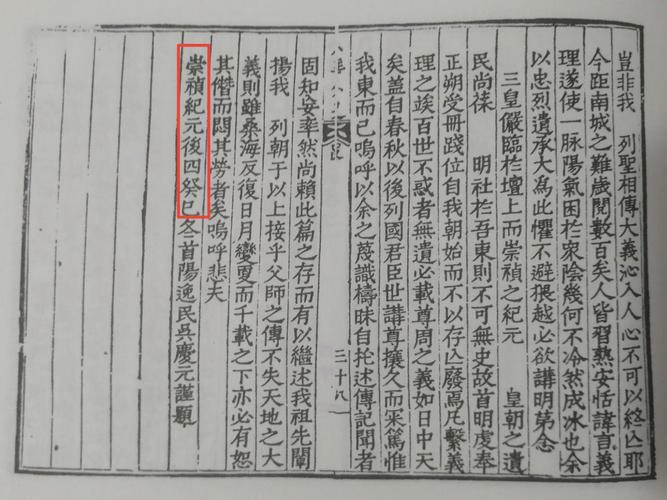 豈非我　列聖相傳大義沁入人心不可終亾耶
今距南城之難歲閱數百矣人皆習熟安恬諱言義
理遂使一脉陽氣困於衆陰幾何不冷然成冰也余
以忠烈遺承大爲此懼不避猥越必欲講明第念
三皇儼臨於壇上而崇禎之紀元　皇朝之遺
民尚徠　明社於吾東則不可無史故首明處奉
正朔受冊踐位自我朝始而不以存亾廢凡繫義
理之竢百世不惑者無遺必載尊周之義如日中天
矣盖自春秋以後列國君臣世講尊攘久而采篤惟
我東而已嗚呼以余之蔑識檮昧自托述傳記聞者
三十八
固知妄率然尚賴此篇之存而有以繼述我祖先闡
揚我　列朝于以上接乎父師之傳不失天地之大
義則雖桑海反復日月變更而千載之下亦必有恕
其僭而悶其勞者矣嗚呼悲夫
崇禎紀元後四癸巳冬首陽逸民吳慶元謹題